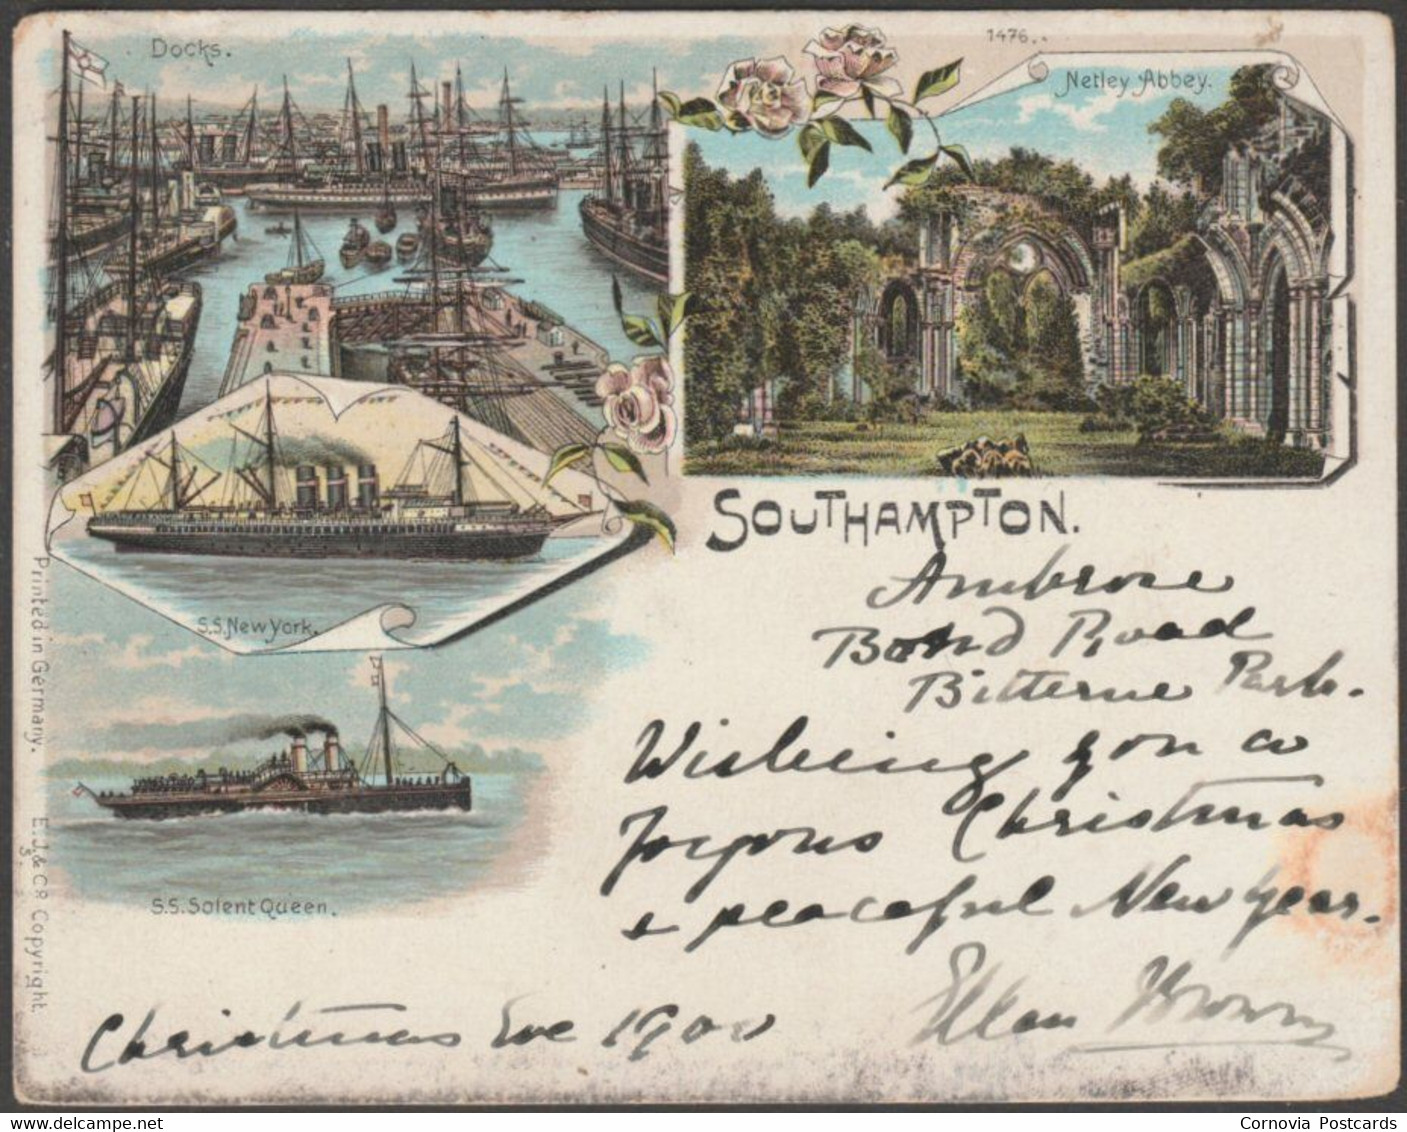 Docks.
1476..
Netley Abbey.
SOUTHAMPTON.
S.S. New York.
S.S. Solent Queen.
Printed in Germany. E.J.& Co Copyright.
Ambrose
Bond Road
Bitterne Park.
Wishing you a
Joyous Christmas
& peaceful New Year.
Ellen Brown
Christmas Eve 1900
Cornovia Postcards